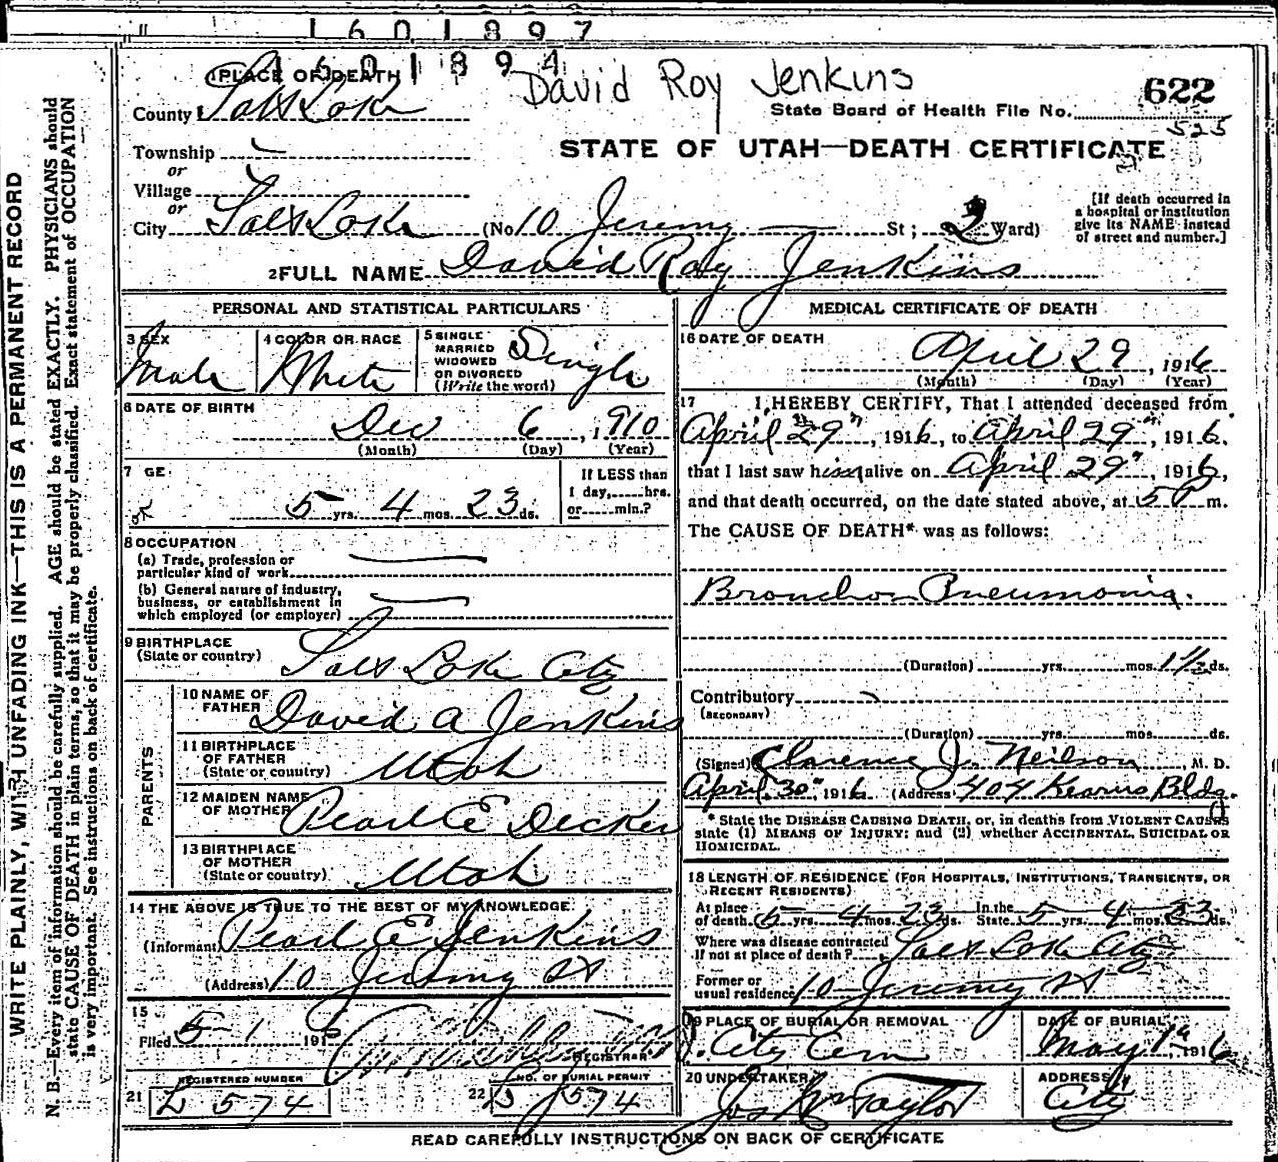 1601897
1601894
1 PLACE OF DEATH
David Roy Jenkins
622
County Salt Lake
State Board of Health File No.
525
Township
or
STATE OF UTAH—DEATH CERTIFICATE
Village
or
City Salt Lake (No 10 Jeremy St; 2 Ward)
[If death occurred in
a hospital or institution
give its NAME instead
of street and number.]
2 FULL NAME David Roy Jenkins
PERSONAL AND STATISTICAL PARTICULARS
3 SEX
Male
4 COLOR OR RACE
White
5 SINGLE
MARRIED
WIDOWED
OR DIVORCED
(Write the word)
Single
6 DATE OF BIRTH
Dec 6, 1910
(Month) (Day) (Year)
7 GE
5 yrs. 4 mos. 23 ds.
If LESS than
1 day, hrs.
or min.?
8 OCCUPATION
(a) Trade, profession or
particular kind of work
(b) General nature of industry,
business, or establishment in
which employed (or employer)
9 BIRTHPLACE
(State or country) Salt Lake City
PARENTS
10 NAME OF
FATHER David A Jenkins
11 BIRTHPLACE
OF FATHER
(State or country) Utah
12 MAIDEN NAME
OF MOTHER Pearl E Decker
13 BIRTHPLACE
OF MOTHER
(State or country) Utah
14 THE ABOVE IS TRUE TO THE BEST OF MY KNOWLEDGE
(Informant) Pearl E Jenkins
(Address) 10 Jeremy St
15
Filed 5-1 191
REGISTRAR
REGISTERED NUMBER
21 L 574
NO. OF BURIAL PERMIT
22 574
MEDICAL CERTIFICATE OF DEATH
16 DATE OF DEATH
April 29, 1916
(Month) (Day) (Year)
17 I HEREBY CERTIFY, That I attended deceased from
April 29", 1916, to April 29", 1916,
that I last saw him alive on April 29", 1916,
and that death occurred, on the date stated above, at 5 P m.
The CAUSE OF DEATH* was as follows:
Broncho Pneumonia.
(Duration) yrs. mos. 1½ ds.
Contributory
(SECONDARY)
(Duration) yrs. mos. ds.
(Signed) Clarence J. Neilson, M. D.
April 30", 1916 (Address) 404 Kearns Bldg.
* State the DISEASE CAUSING DEATH, or, in deaths from VIOLENT CAUSES
state (1) MEANS OF INJURY; and (2) whether ACCIDENTAL, SUICIDAL OR
HOMICIDAL.
18 LENGTH OF RESIDENCE (FOR HOSPITALS, INSTITUTIONS, TRANSIENTS, OR
RECENT RESIDENTS)
At place
of death 5 yrs. 4 mos. 23 ds. In the
State 5 yrs. 4 mos. 23 ds.
Where was disease contracted
If not at place of death? Salt Lake City
Former or
usual residence 10 Jeremy St
19 PLACE OF BURIAL OR REMOVAL
City Cem
DATE OF BURIAL
May 1st, 1916
20 UNDERTAKER
Jos Wm Taylor
ADDRESS
City
READ CAREFULLY INSTRUCTIONS ON BACK OF CERTIFICATE
WRITE PLAINLY, WITH UNFADING INK—THIS IS A PERMANENT RECORD
N. B.—Every item of information should be carefully supplied. AGE should be stated EXACTLY. PHYSICIANS should
state CAUSE OF DEATH in plain terms, so that it may be properly classified. Exact statement of OCCUPATION
is very important. See instructions on back of certificate.